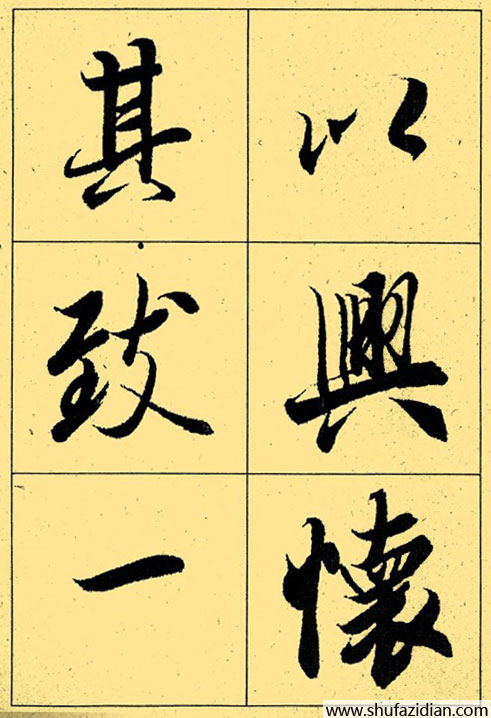 以興懷
其致一
www.shufazidian.com